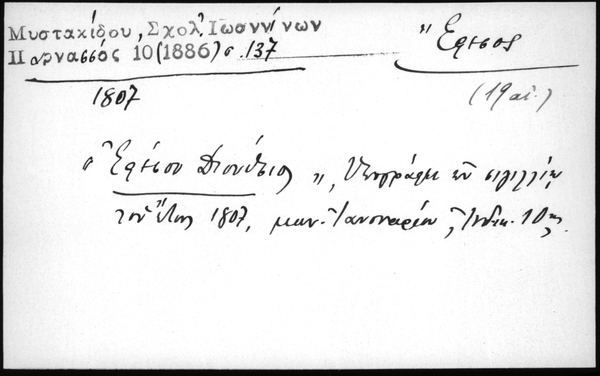 Μυστακίδου, Σχολ. Ἰωαννίνων
Παρνασσός 10 (1886) σ. 137
"Έφεσος
1807
(19 αἰ.)
"Ἐφέσου Διονύσιος", ὑπογράφει ἐν σιγιλλίῳ
τοῦ ἔτους 1807, μην. Ἰανουαρίου, Ἰνδικ. 10ης.